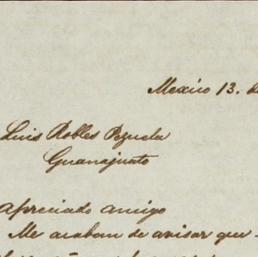 Mexico 13. de
Luis Robles Pezuela
Guanajuato
Apreciado amigo
Me acaban de avisar que